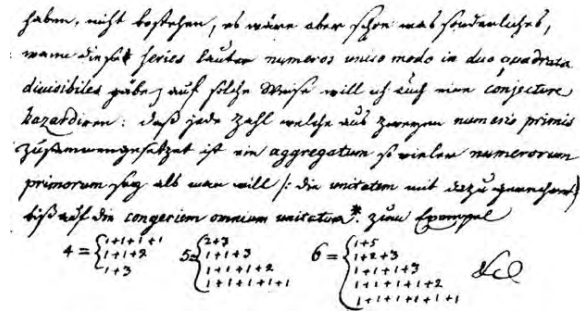 haben, nicht bestehen, es wäre aber schon was sonderliches,
wann diese series lauter numeros unico modo in duo quadrata
divisibiles gäbe, auf solche Weise will ich auch eine conjecture
hazardiren: daß jede Zahl welche aus zweyen numeris primis
zusammengesetzet ist ein aggregatum so vieler numerorum
primorum sey als man will /: die unitatem mit dazu gerechnet
biß auf die congeriem omnium unitatum*. zum Exempel
4 = { 1+1+1+1
1+1+2
1+3
5 = { 2+3
1+1+3
1+1+1+2
1+1+1+1+1
6 = { 1+5
1+2+3
1+1+1+3
1+1+1+1+2
1+1+1+1+1+1